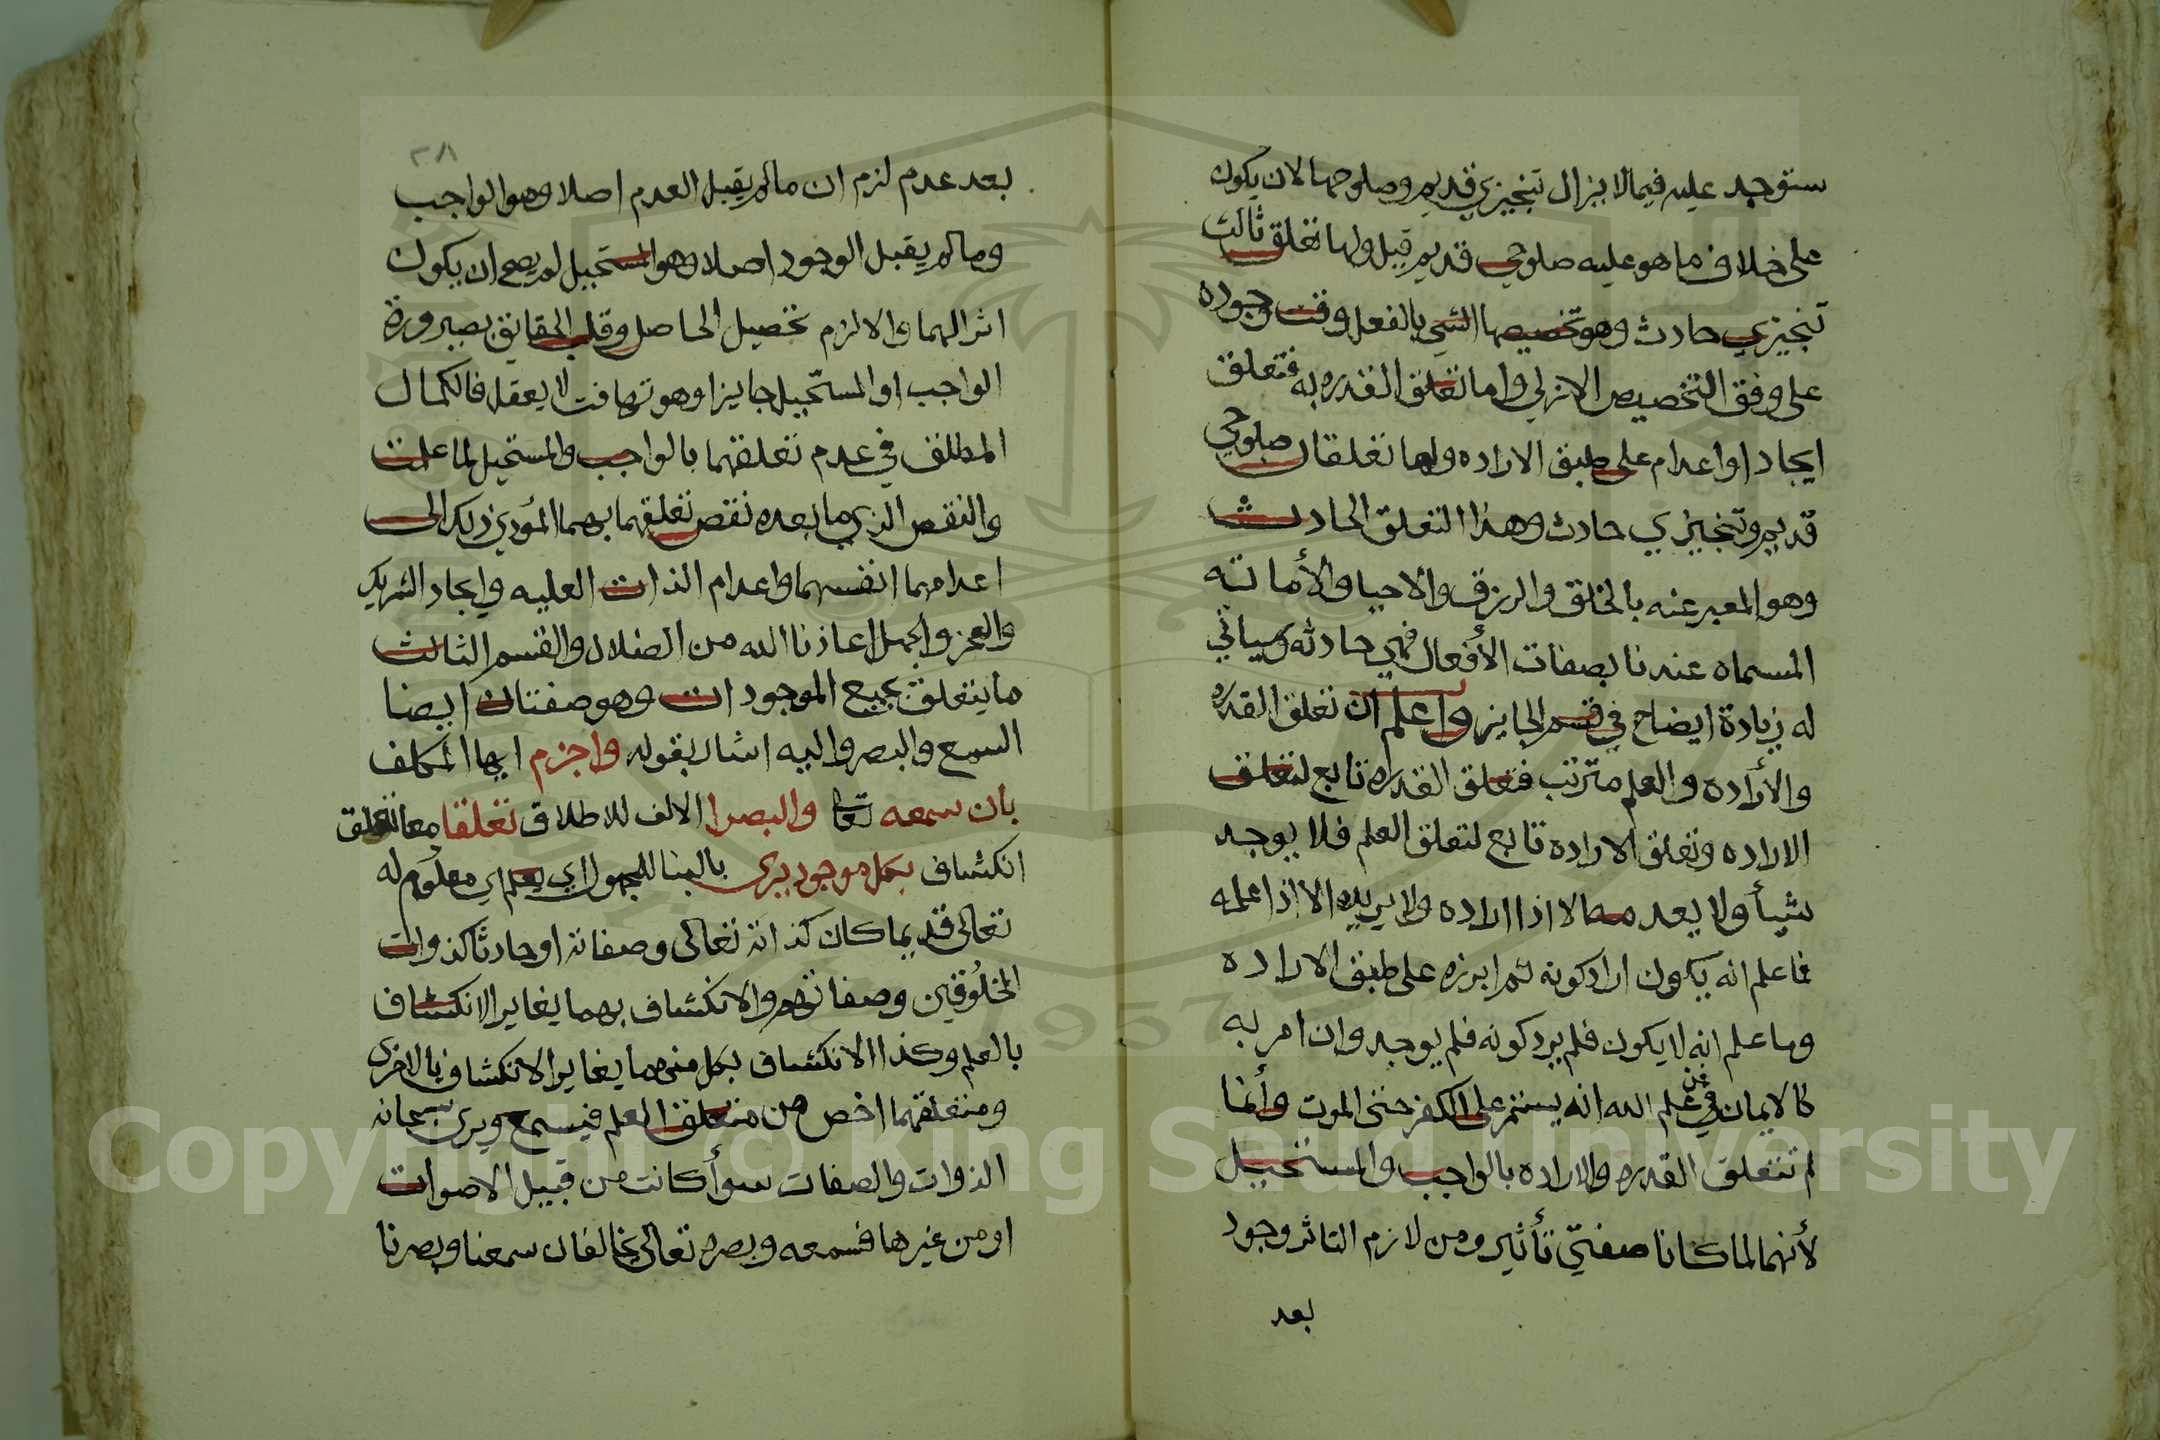 ستوجد عليه فيما لا يزال تنجيزي قديم وصلوحها لان يكون
على خلاف ما هو عليه صلوحي قديم قيل ولها تعلق ثالث
تنجيزي حادث وهو تخصيصها الشي بالفعل وقت وجوده
على وفق التخصيص الازلي واما تعلق القدره به فتعلق
ايجاد او اعدام على طبق الاراده ولها تعلقان صلوحي
قديم وتنجيزي حادث وهذا التعلق الحادث
وهو المعبر عنه بالخلق والرزق والاحيا والأماته
المسماه عندنا بصفات الأفعال فهي حادثه وسياتي
له زيادة ايضاح في قسم الجايز واعلم ان تعلق القدره
والأراده والعلم مترتب فتعلق القدره تابع لتعلق
الاراده وتعلق الاراده تابع لتعلق العلم فلا يوجد
شيأ ولا يعدمه الا اذا اراده ولا يريده الا اذا علمه
فما علم انه يكون اراد كونه ثم ابرزه على طبق الاراده
وما علم انه لا يكون فلم يرد كونه فلم يوجد وان امر به
كالايمان في علم الله انه يستمر على الكفر حتى الموت وأنما
لم تتعلق القدره والاراده بالواجب والمستحيل
لأنهما لما كانا صفتي تأثير ومن لازم التاثر وجود
بعد
٢٨
بعد عدم لزم ان ما لم يقبل العدم اصلا وهو الواجب
وما لم يقبل الوجود اصلا وهو المستحيل لم يصح ان يكون
اثرا لهما والا لزم تحصيل الحاصل وقلب الحقايق بصيرورة
الواجب او المستحيل جايزا وهو تهافت لا يعقل فالكمال
المطلق في عدم تعلقهما بالواجب والمستحيل لما علمت
والنقص الذي ما بعده نقص تعلقهما بهما المؤدي ذلك الى
اعدامهما انفسهما واعدام الذات العليه وايجاد الشريك
والعجز والجهل اعاذنا الله من الضلال والقسم الثالث
ما يتعلق بجميع الموجودات وهو صفتان ايضا
السمع والبصر واليه اشار بقوله واجزم ايها المكلف
بان سمعه تعا والبصرا الالف للاطلاق تعلقا معا تعلق
انكشاف بكل موجود يرى بالبنا للمجهول اي يعلم اي معلوم له
تعالى قديما كان كذاته تعالى وصفاته او حادثا كذوات
المخلوقين وصفاتهم والانكشاف بهما يغاير الانكشاف
بالعلم وكذا الانكشاف بكل منهما يغاير الانكشاف بالاخرى
ومتعلقهما اخص من متعلق العلم فيسمع ويرى سبحانه
الذوات والصفات سوأ كانت من قبيل الاصوات
او من غيرها فسمعه وبصره تعالى يخالفان سمعنا وبصرنا
Copyright © King Saud University
1957